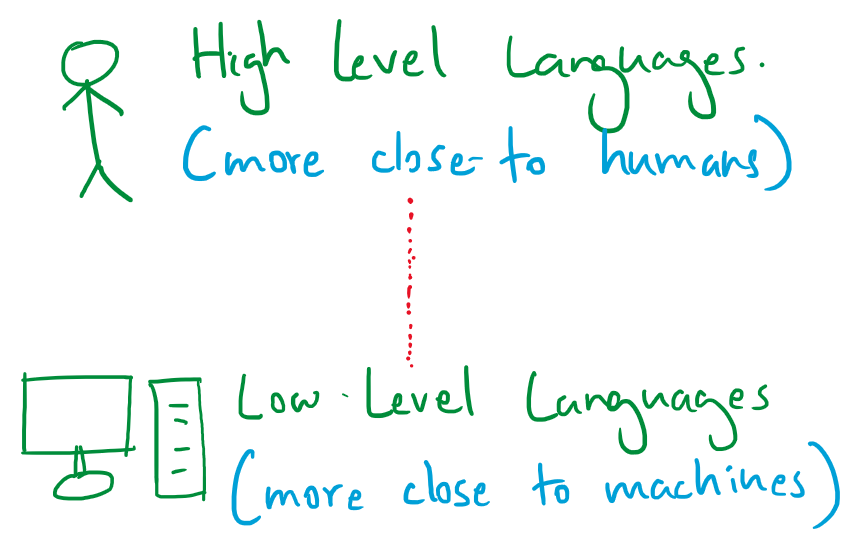 High Level Languages.
(more close to humans)
Low-Level Languages
(more close to machines)